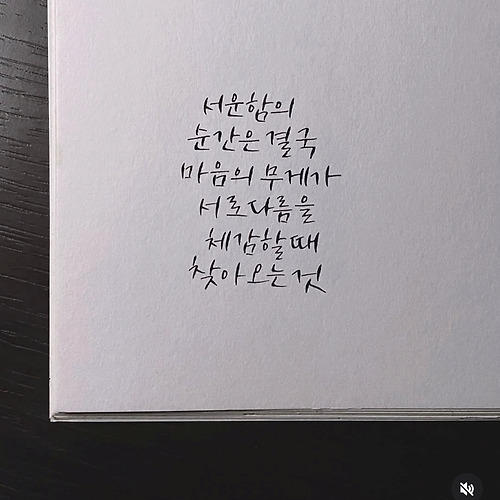 서운함의
순간은 결국
마음의 무게가
서로다름을
체감할 때
찾아오는 것